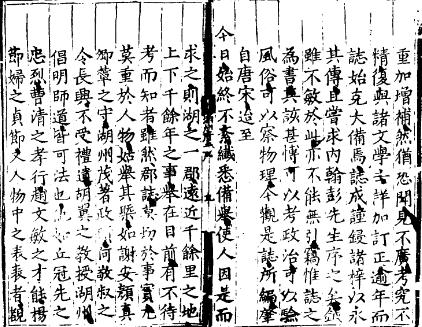 重加增補然猶恐聞見不廣考究不
情復與諸文學士詳加訂正逾年而
誌始克大備焉誌成謹鋟諸梓以永
其傳且嘗求內翰彭先生序之矣
雖不敏於此亦不能無引竊惟誌之
為書其該甚博可以考政治可以驗
風俗可以察物理今觀是誌所編肇
自唐宋迄至
今日始終不紊纖悉備舉使人因是而
求之則湖之一郡遠近千餘里之地
上下千餘年之事舉在目前有不待
考而知者雖然郡誌莫物於事實尤
莫重於人物姑舉其槩如謝安顏真
卿輩之守湖州茂著政何敬叔之
令長興不受禮遺胡翼之教授湖州
倡明師道皆可法也丘冠先之
忠烈曹清之孝行趙文敏之才能楊
節婦之貞節又人物中之表表者觀